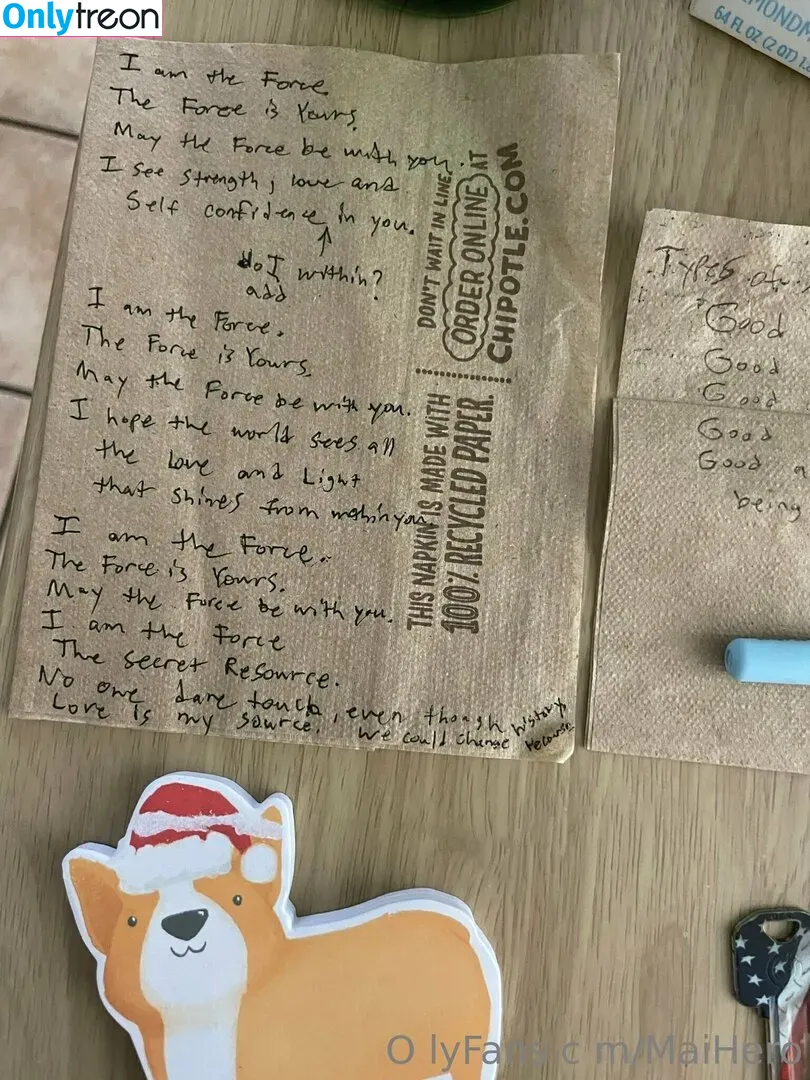 Onlytreon
64 FL OZ (2 QT) 1.
I am the Force.
The Force is Yours.
May the Force be with you.
I see strength, love and
Self confidence in you.
do I within?
add
I am the Force.
The Force is Yours.
May the Force be with you.
I hope the world sees all
the love and Light
that shines from within you.
I am the Force.
The Force is Yours.
May the Force be with you.
I am the Force
The secret Resource.
No one dare touch, even though
Love is my source. We could change history
DON'T WAIT IN LINE,
ORDER ONLINE AT
CHIPOTLE.COM
THIS NAPKIN IS MADE WITH
100% RECYCLED PAPER.
Types of
Good
Good
Good
Good
Good a
being
O lyFa c m/MaiHero